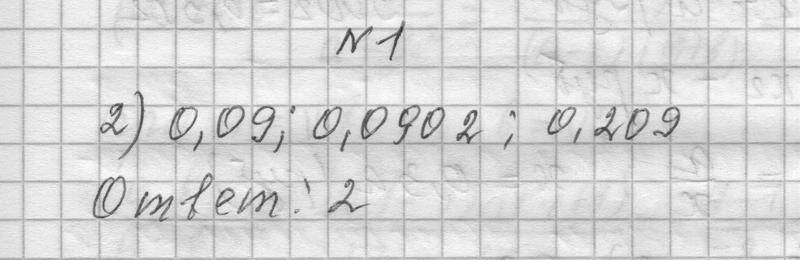 N 1
2) 0,09; 0,0902; 0,209
Ответ: 2